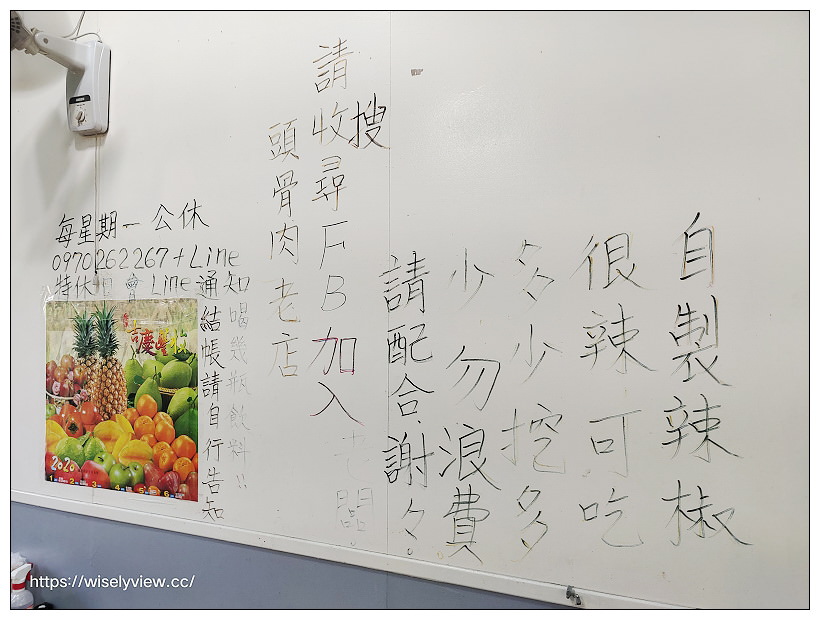 自製辣椒
很辣可吃
多少挖多
少勿浪費
請配合.謝々。
搜
請收尋FB加入老闆。
頭骨肉老店
每星期一公休
0970262267+Line
特休日會Line通知
喝幾瓶飲料!!
結帳請自行告知
2020
1 2 3 4 5 6
https://wiselyview.cc/